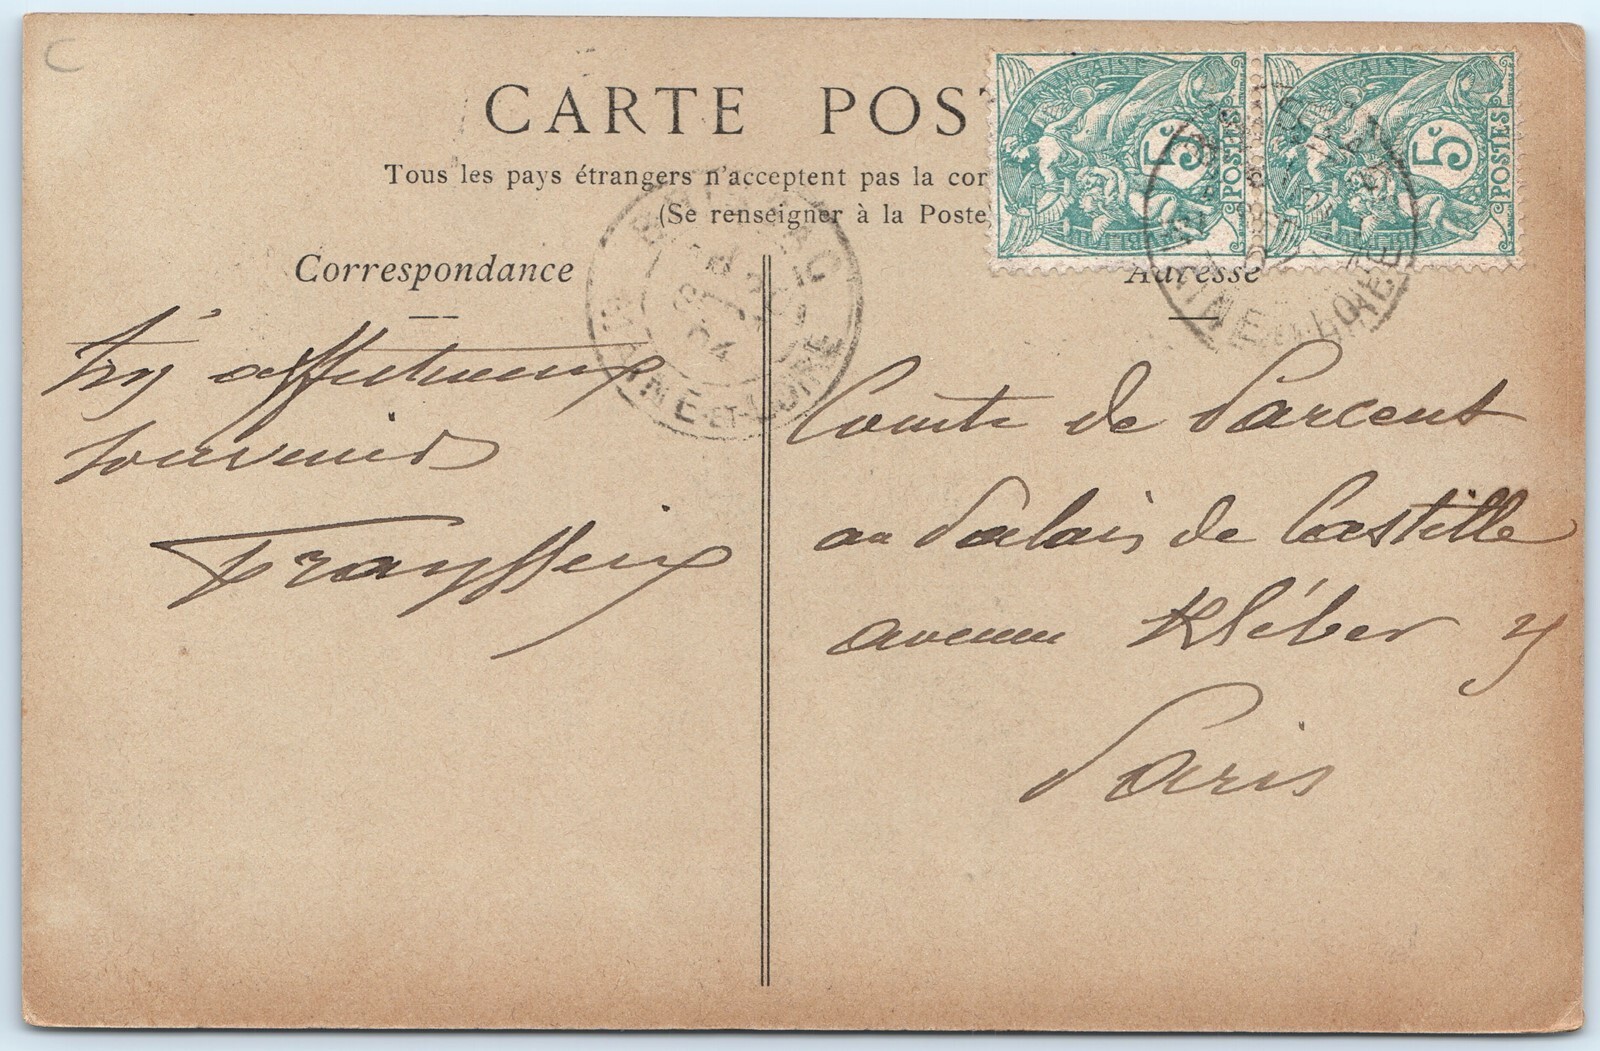 CARTE POST
Tous les pays étrangers n'acceptent pas la cor
(Se renseigner à la Poste
Correspondance
Adresse
FRANÇAISE
5c
POSTES
FRANÇAISE
5c
POSTES
MAINE-ET-LOIRE
04
INE-ET-LOIRE
Très affectueux
souvenirs
Comte de Parcent
au Palais de Castille
avenue Kléber
Paris